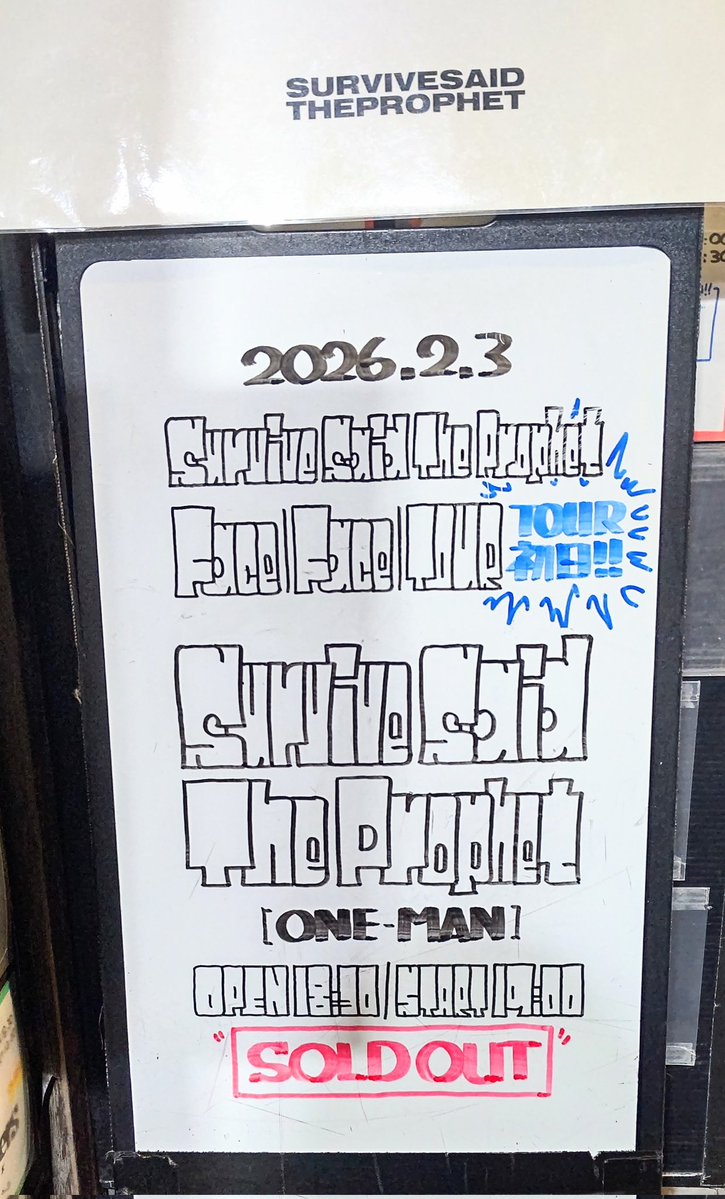 SURVIVESAID
THEPROPHET
2026.2.3
Survive Said The Prophet
Face | Face | TOUR
TOUR
初日!!
Survive Said
The Prophet
[ONE-MAN]
OPEN 18:30 / START 19:00
"SOLD OUT"
:00
:30
!!